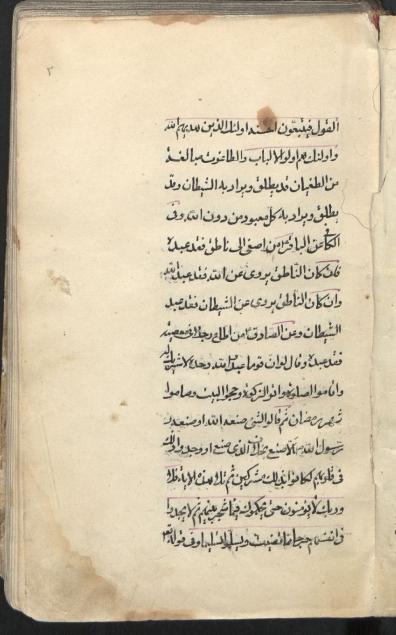 ٢
القول فيتبعون احسنه اولئك الذين هديهم الله
واولئك هم اولوا الالباب والطاغوت مبالغة
من الطغيان قد يطلق ويراد به الشيطان وقد
يطلق ويراد به كل معبود من دون الله وفى
الكافى عن الباقر من اصغى الى ناطق فقد عبده
فان كان الناطق يروى عن الله فقد عبد الله
وان كان الناطق يروى عن الشيطان فقد عبد
الشيطان وعن الصادق من اطاع رجلا فى معصية
فقد عبده وقال لو ان قوما عبدوا الله وحده لا شريك له
واقاموا الصلوة واتوا الزكوة وحجوا البيت وصاموا
شهر رمضان ثم قالوا لشئ صنعه الله او صنعه
رسول الله الا صنع خلاف الذى صنع او وجدوا ذلك
فى قلوبهم لكانوا بذلك مشركين ثم تلا هذه الاية فلا
وربك لا يؤمنون حتى يحكموك فيما شجر بينهم ثم لا يجدوا
فى انفسهم حرجا مما قضيت ويسلموا تسليما وفى قوله